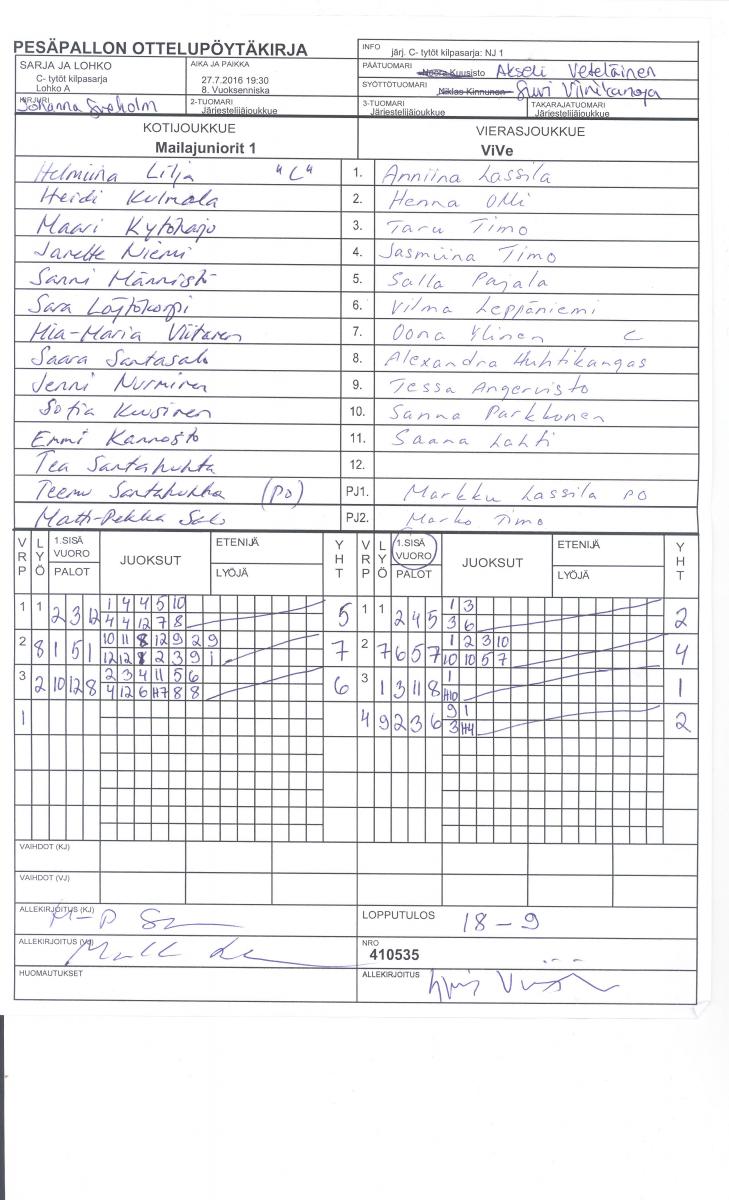 PESÄPALLON OTTELUPÖYTÄKIRJA
INFO järj. C- tytöt kilpasarja: NJ 1
SARJA JA LOHKO
C- tytöt kilpasarja
Lohko A
AIKA JA PAIKKA
27.7.2016 19:30
8. Vuoksenniska
PÄÄTUOMARI Noora Kuusisto Akseli Veteläinen
SYÖTTÖTUOMARI Niklas Kinnunen Suvi Viinikanoja
KIRJURI
Johanna
2-TUOMARI
Järjestelijäjoukkue
3-TUOMARI
Järjestelijäjoukkue
TAKARAJATUOMARI
Järjestelijäjoukkue
KOTIJOUKKUE
Mailajuniorit 1
VIERASJOUKKUE
ViVe
Helmiina Lilja "C" 1. Anniina Lassila
Heidi Kulmala 2. Henna Olli
Maari Kytöharju 3. Taru Timo
Janette Niemi 4. Jasmiina Timo
Sanni Männistö 5. Salla Pajala
Sara Löytökorpi 6. Vilma Leppäniemi
Mia-Maria Viitanen 7. Oona Ylinen C
Saara Santasalo 8. Alexandra Huhtikangas
Jenni Nurminen 9. Tessa Angervisto
Sofia Kuusinen 10. Sanna Parkkonen
Emmi Kannosto 11. Saana Lahti
Tea Santahuhta 12.
Teemu Santahuhta (PO) PJ1. Markku Lassila PO
Matti-Pekka Salo PJ2. Marko Timo
VRP LYÖ 1.SISÄ VUORO PALOT JUOKSUT ETENIJÄ LYÖJÄ YHT
VRP LYÖ 1.SISÄ VUORO PALOT JUOKSUT ETENIJÄ LYÖJÄ YHT
1 1 2 3 12 1 4 4 5 10 5 1 1 2 4 5 1 3 2
4 4 12 7 8 3 6
2 8 1 5 1 10 11 8 12 9 2 9 7 2 7 6 5 7 1 2 3 10 4
12 12 8 2 3 9 1 10 10 5 7
3 2 10 12 8 2 3 4 11 5 6 6 3 1 3 11 8 1 1
4 12 6 H7 8 8 H10
1 4 9 2 3 6 9 1 2
3 H4
VAIHDOT (KJ)
VAIHDOT (VJ)
ALLEKIRJOITUS (KJ) M-P
LOPPUTULOS 18-9
ALLEKIRJOITUS (VJ)
NRO
410535
HUOMAUTUKSET
ALLEKIRJOITUS